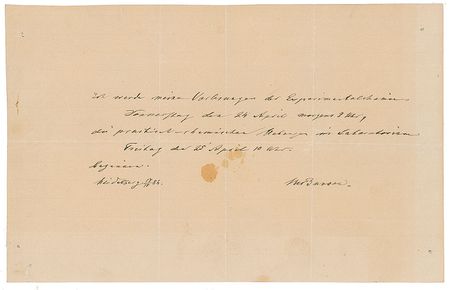 Ich werde meine Vorlesungen der Experimentalchemie
Donnerstag den 24 April morgens 9 Uhr,
die practisch-chemischen Uebungen im Laboratorium
Freitag den 25 April 10 Uhr.
beginnen.
Heidelberg
RWBunsen.